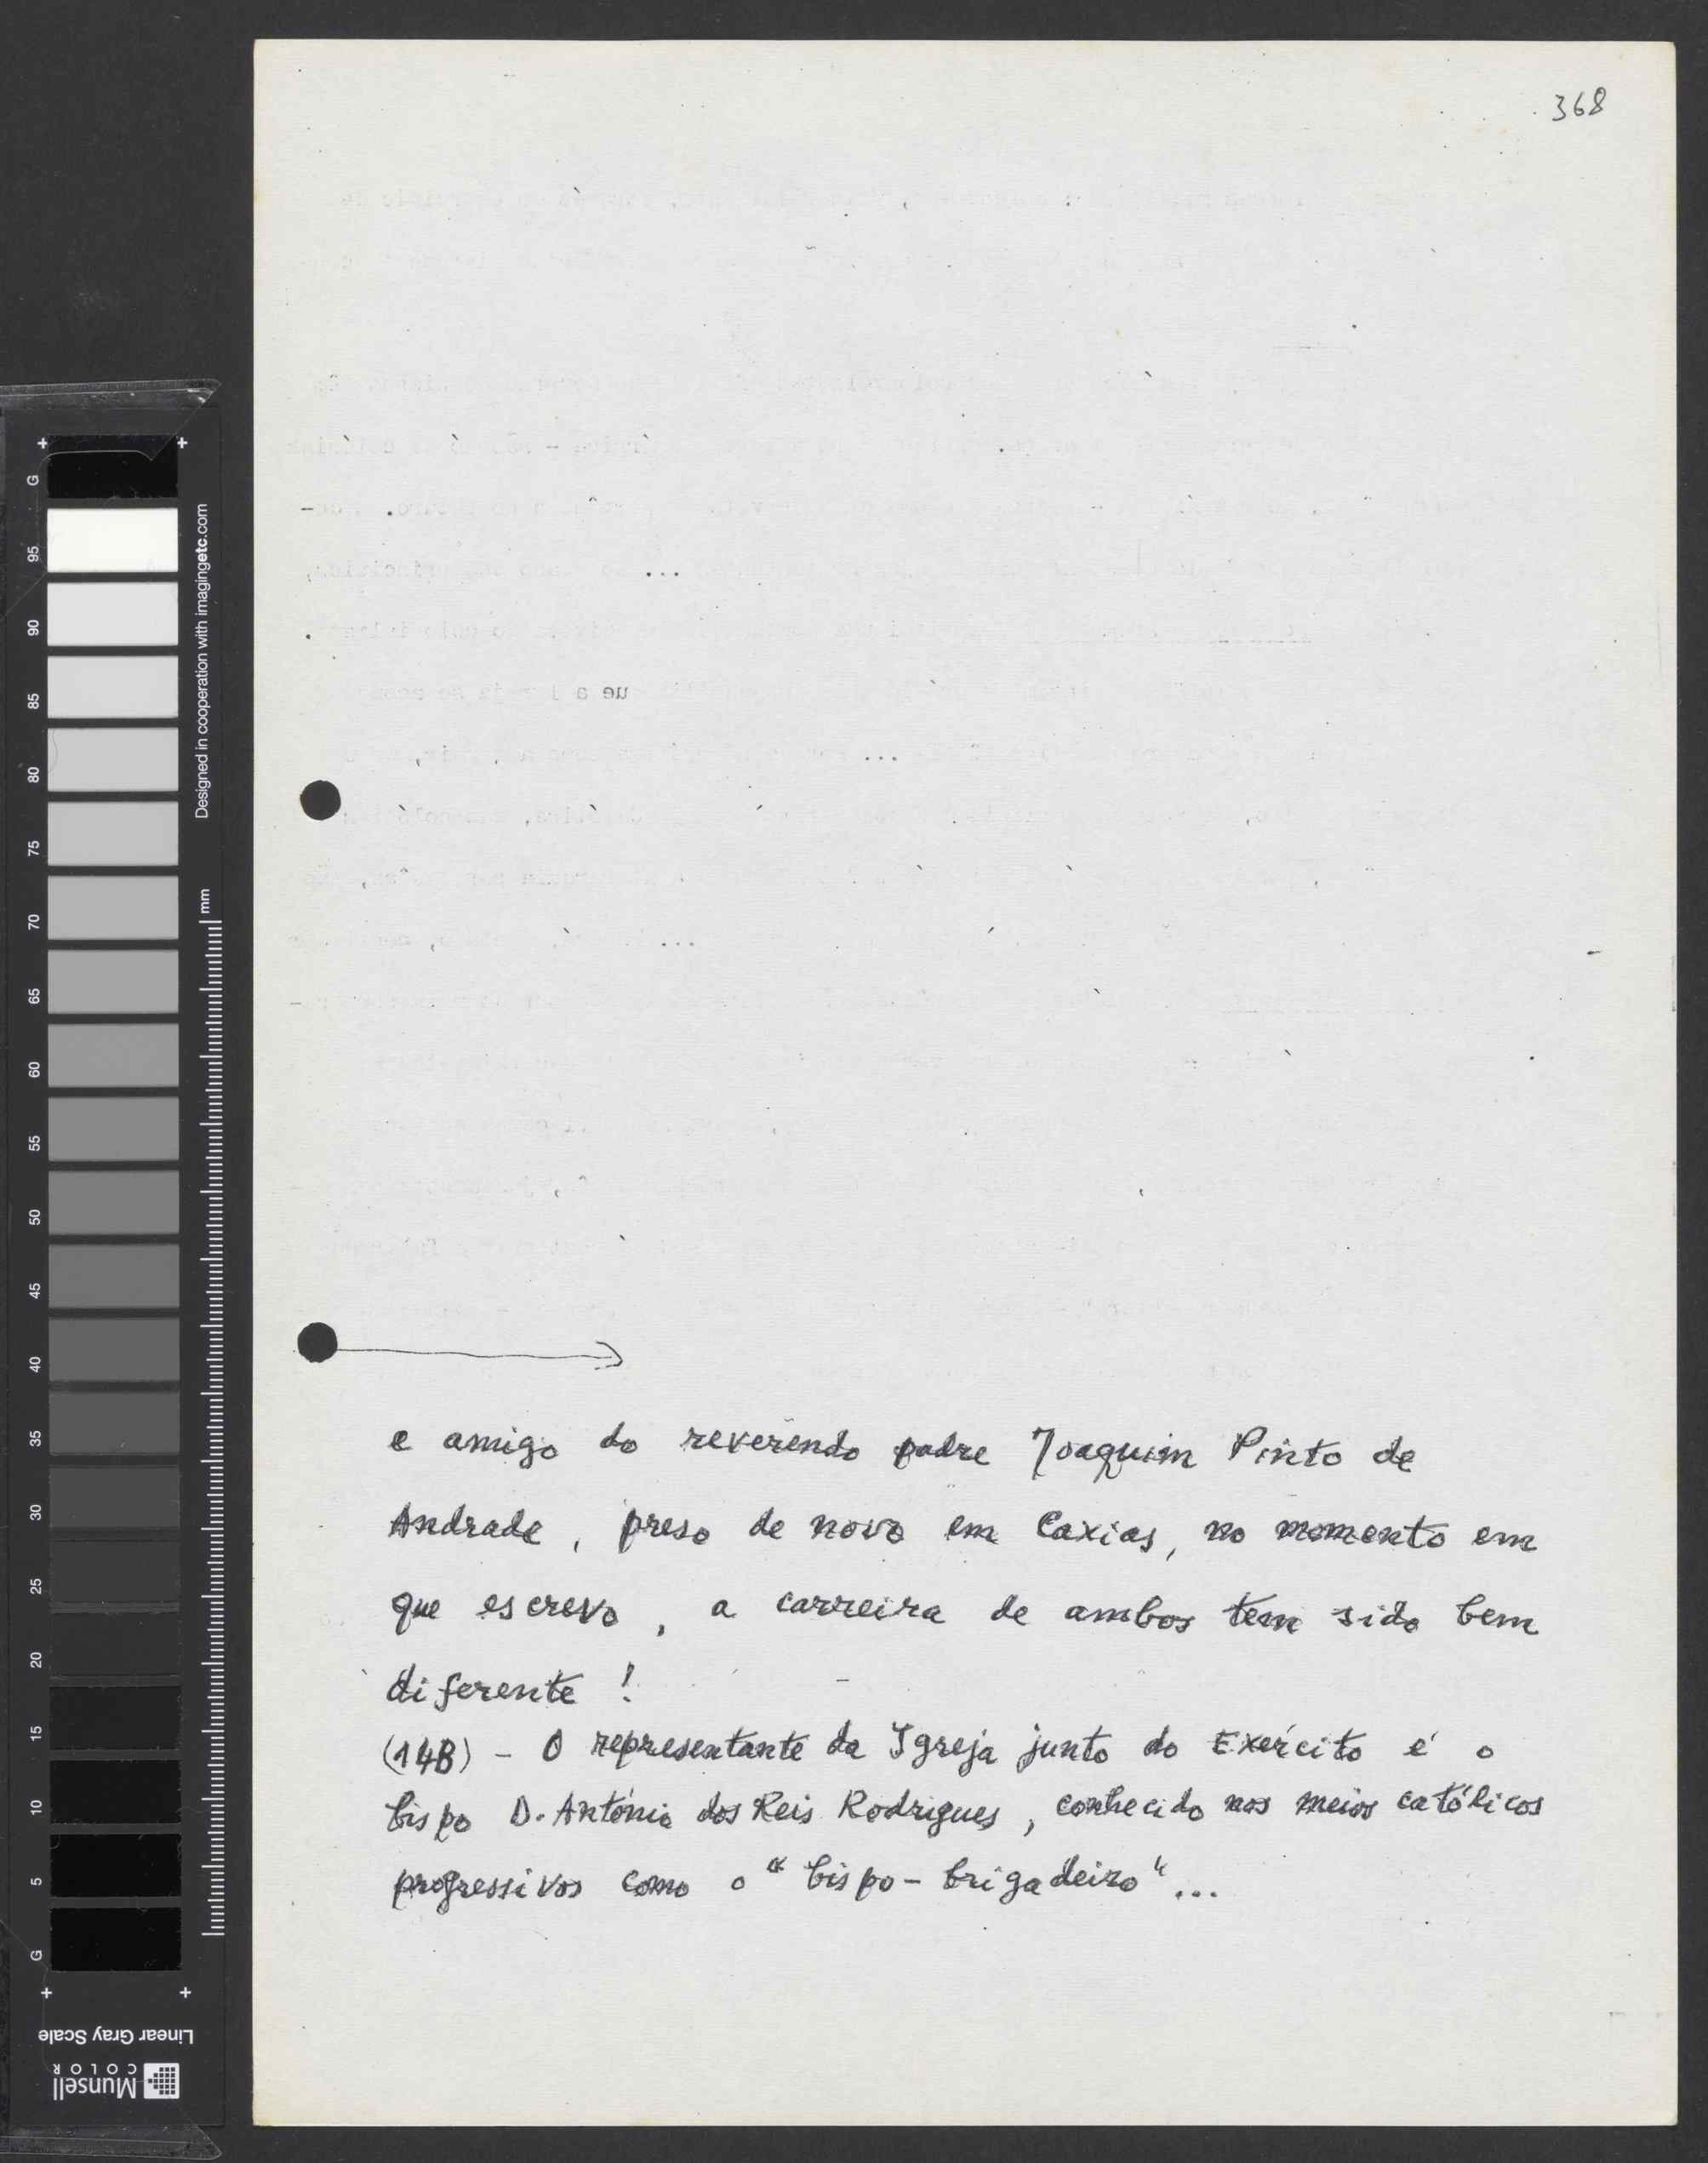 368
e amigo do reverendo padre Joaquim Pinto de
Andrade, preso de novo em Caxias, no momento em
que escrevo, a carreira de ambos tem sido bem
diferente!
(14B) - O representante da Igreja junto do Exército é o
bispo D. António dos Reis Rodrigues, conhecido nos meios católicos
progressivos como o "bispo-brigadeiro"...
G
95
90
85
80
75
70
65
60
55
50
45
40
35
30
25
20
15
10
5
G
Designed in cooperation with imagingetc.com
mm
Linear Gray Scale
Munsell
COLOR